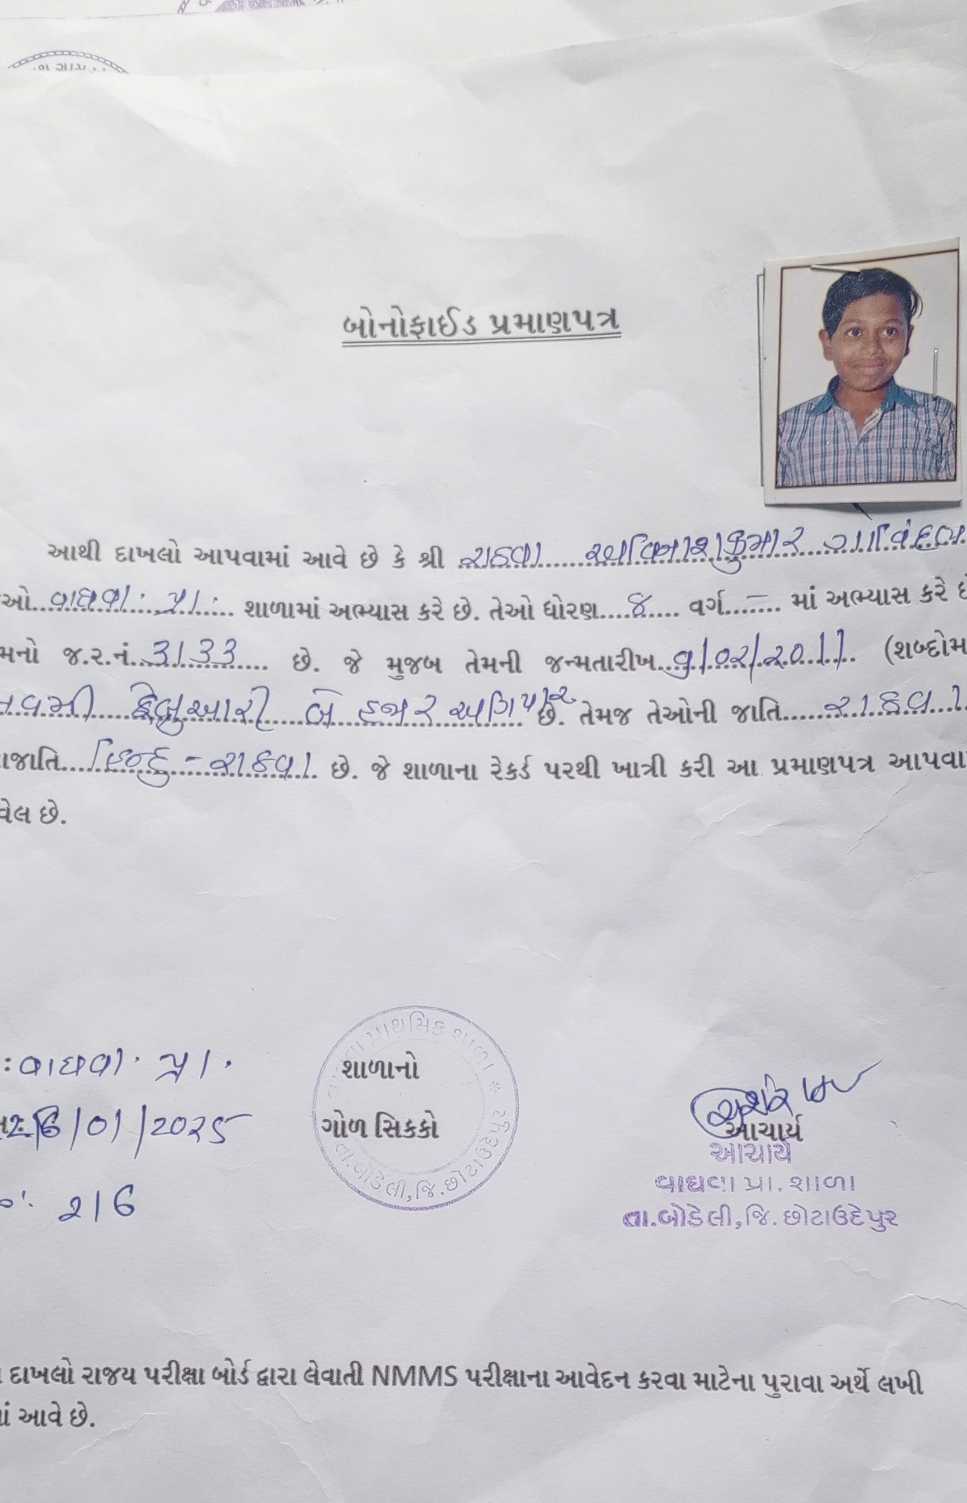 બોનોફાઈડ પ્રમાણપત્ર
આથી દાખલો આપવામાં આવે છે કે શ્રી રાઠવા અવિનાશકુમાર ગોવિંદભા
ઓ વાઘવા પ્રા. શાળામાં અભ્યાસ કરે છે. તેઓ ધોરણ 8 વર્ગ - માં અભ્યાસ કરે છે
મનો જ.ર.નં. 3133 છે. જે મુજબ તેમની જન્મતારીખ 9/02/2011. (શબ્દોમ
નવમી ફેબ્રુઆરી બે હજાર અગિયાર છે. તેમજ તેઓની જાતિ રાઠવા
ાજાતિ હિન્દુ - રાઠવા છે. જે શાળાના રેકર્ડ પરથી ખાત્રી કરી આ પ્રમાણપત્ર આપવા
વેલ છે.
: વાઘવા. પ્રા.
26/01/2025
216
શાળાનો
ગોળ સિક્કો
પ્રાથમિક શાળા * તા.બોડેલી, જિ.છોટાઉદેપુર
આચાર્ય
આચાર્ય
વાઘવા પ્રા. શાળા
તા.બોડેલી, જિ. છોટાઉદેપુર
દાખલો રાજય પરીક્ષા બોર્ડ દ્વારા લેવાતી NMMS પરીક્ષાના આવેદન કરવા માટેના પુરાવા અર્થે લખી
ાં આવે છે.